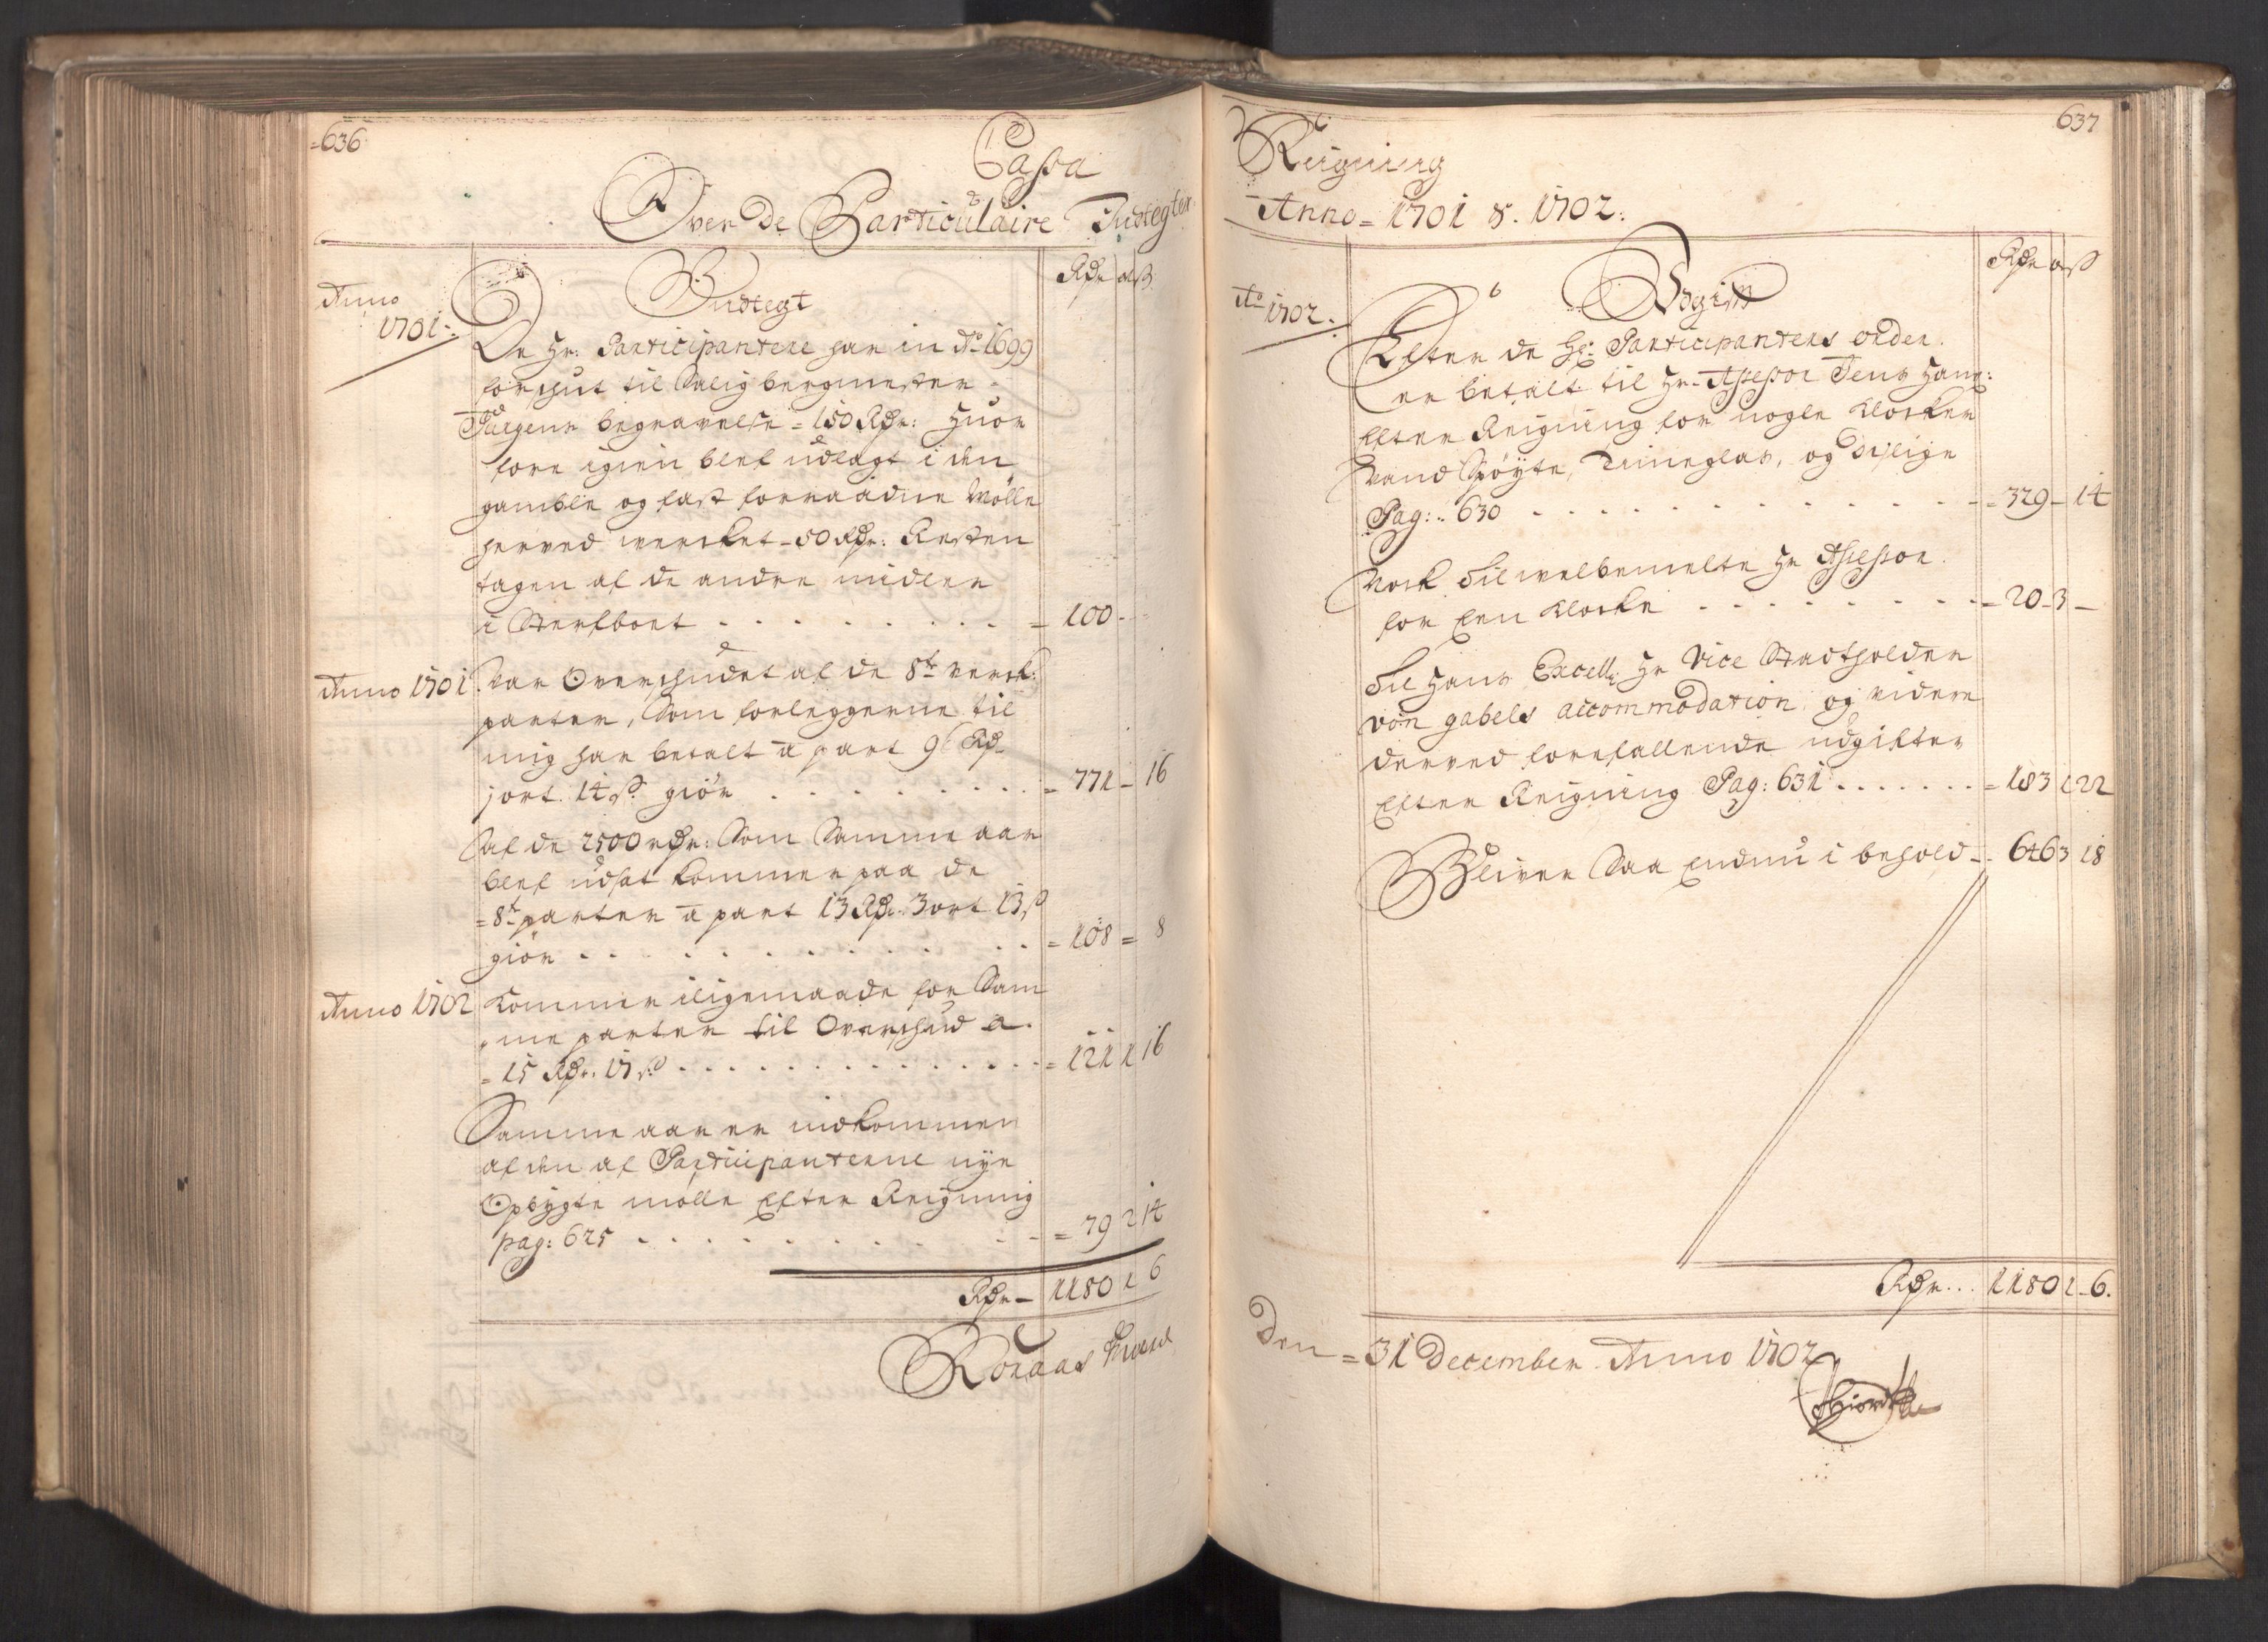 636
Cassa
Over De Particulaire Indtegter
Anno
1701:
Indtegt
Rdr ort ß
De Hr: Participantere har in Ao 1699
forschut til Salig bergmester
Jurgens begravelse = 150 Rdr: Huor
fore igien blef udlagt i den
gamble og fast forraadne Mølle
herved wercket - 50 Rdr: Resten
tagen af de andre midler
i Sterfboet . . . . . . . . = 100 -
Anno 1701
Var Overschudet af de 8te verck
parter, Som forleggerne til
mig har betalt a part 96 Rd
1 ort. 14 ß giör . . . . . . . = 771 - 16
Af de 2500 rdr: Som Samme aar
blef udsat kommer paa de
= 8te parter a part 13 Rdr 3 ort 13 ß
giör . . . . . . . . . = 108 = 8
Anno 1702
Kommer iligemaade for Sam
me parter til Overschud a
= 15 Rdr: 17 ß . . . . . . . . . = 121 1 16
Samme aar er indkommen
af den af Participanterne nye
Opbygte mölle Efter Reigning
pag: 625 . . . . . . . . = 79 2 14
Rdr - 1180 1 6
Röraas Huerck
637
Reigning
Anno = 1701 & 1702:
Ao 1702:
Udgift
Rdr ort ß
Efter de Hr: Participanters order
er betalt til Hr. Assessor Jens Hans:
Efter Reigning for nogle Klocker
Vand Spöyte, Timeglas, og deslige
Pag: 630 . . . . . . . . . . = 329 - 14
Nock til welbemelte Hr Assessor
for Een Klocke . . . . . . . . = 20 - 3 -
Til Hans Excell: Hr Vice Stadtholder
von gabels accommodation og videre
derved forefallende udgifter
Efter Reigning Pag: 631 . . . . . . = 183 1 22
Bliver Saa Endnu i behold - 646 3 18
Rdr . . . 1180 1 - 6.
Den = 31 December Anno 1702